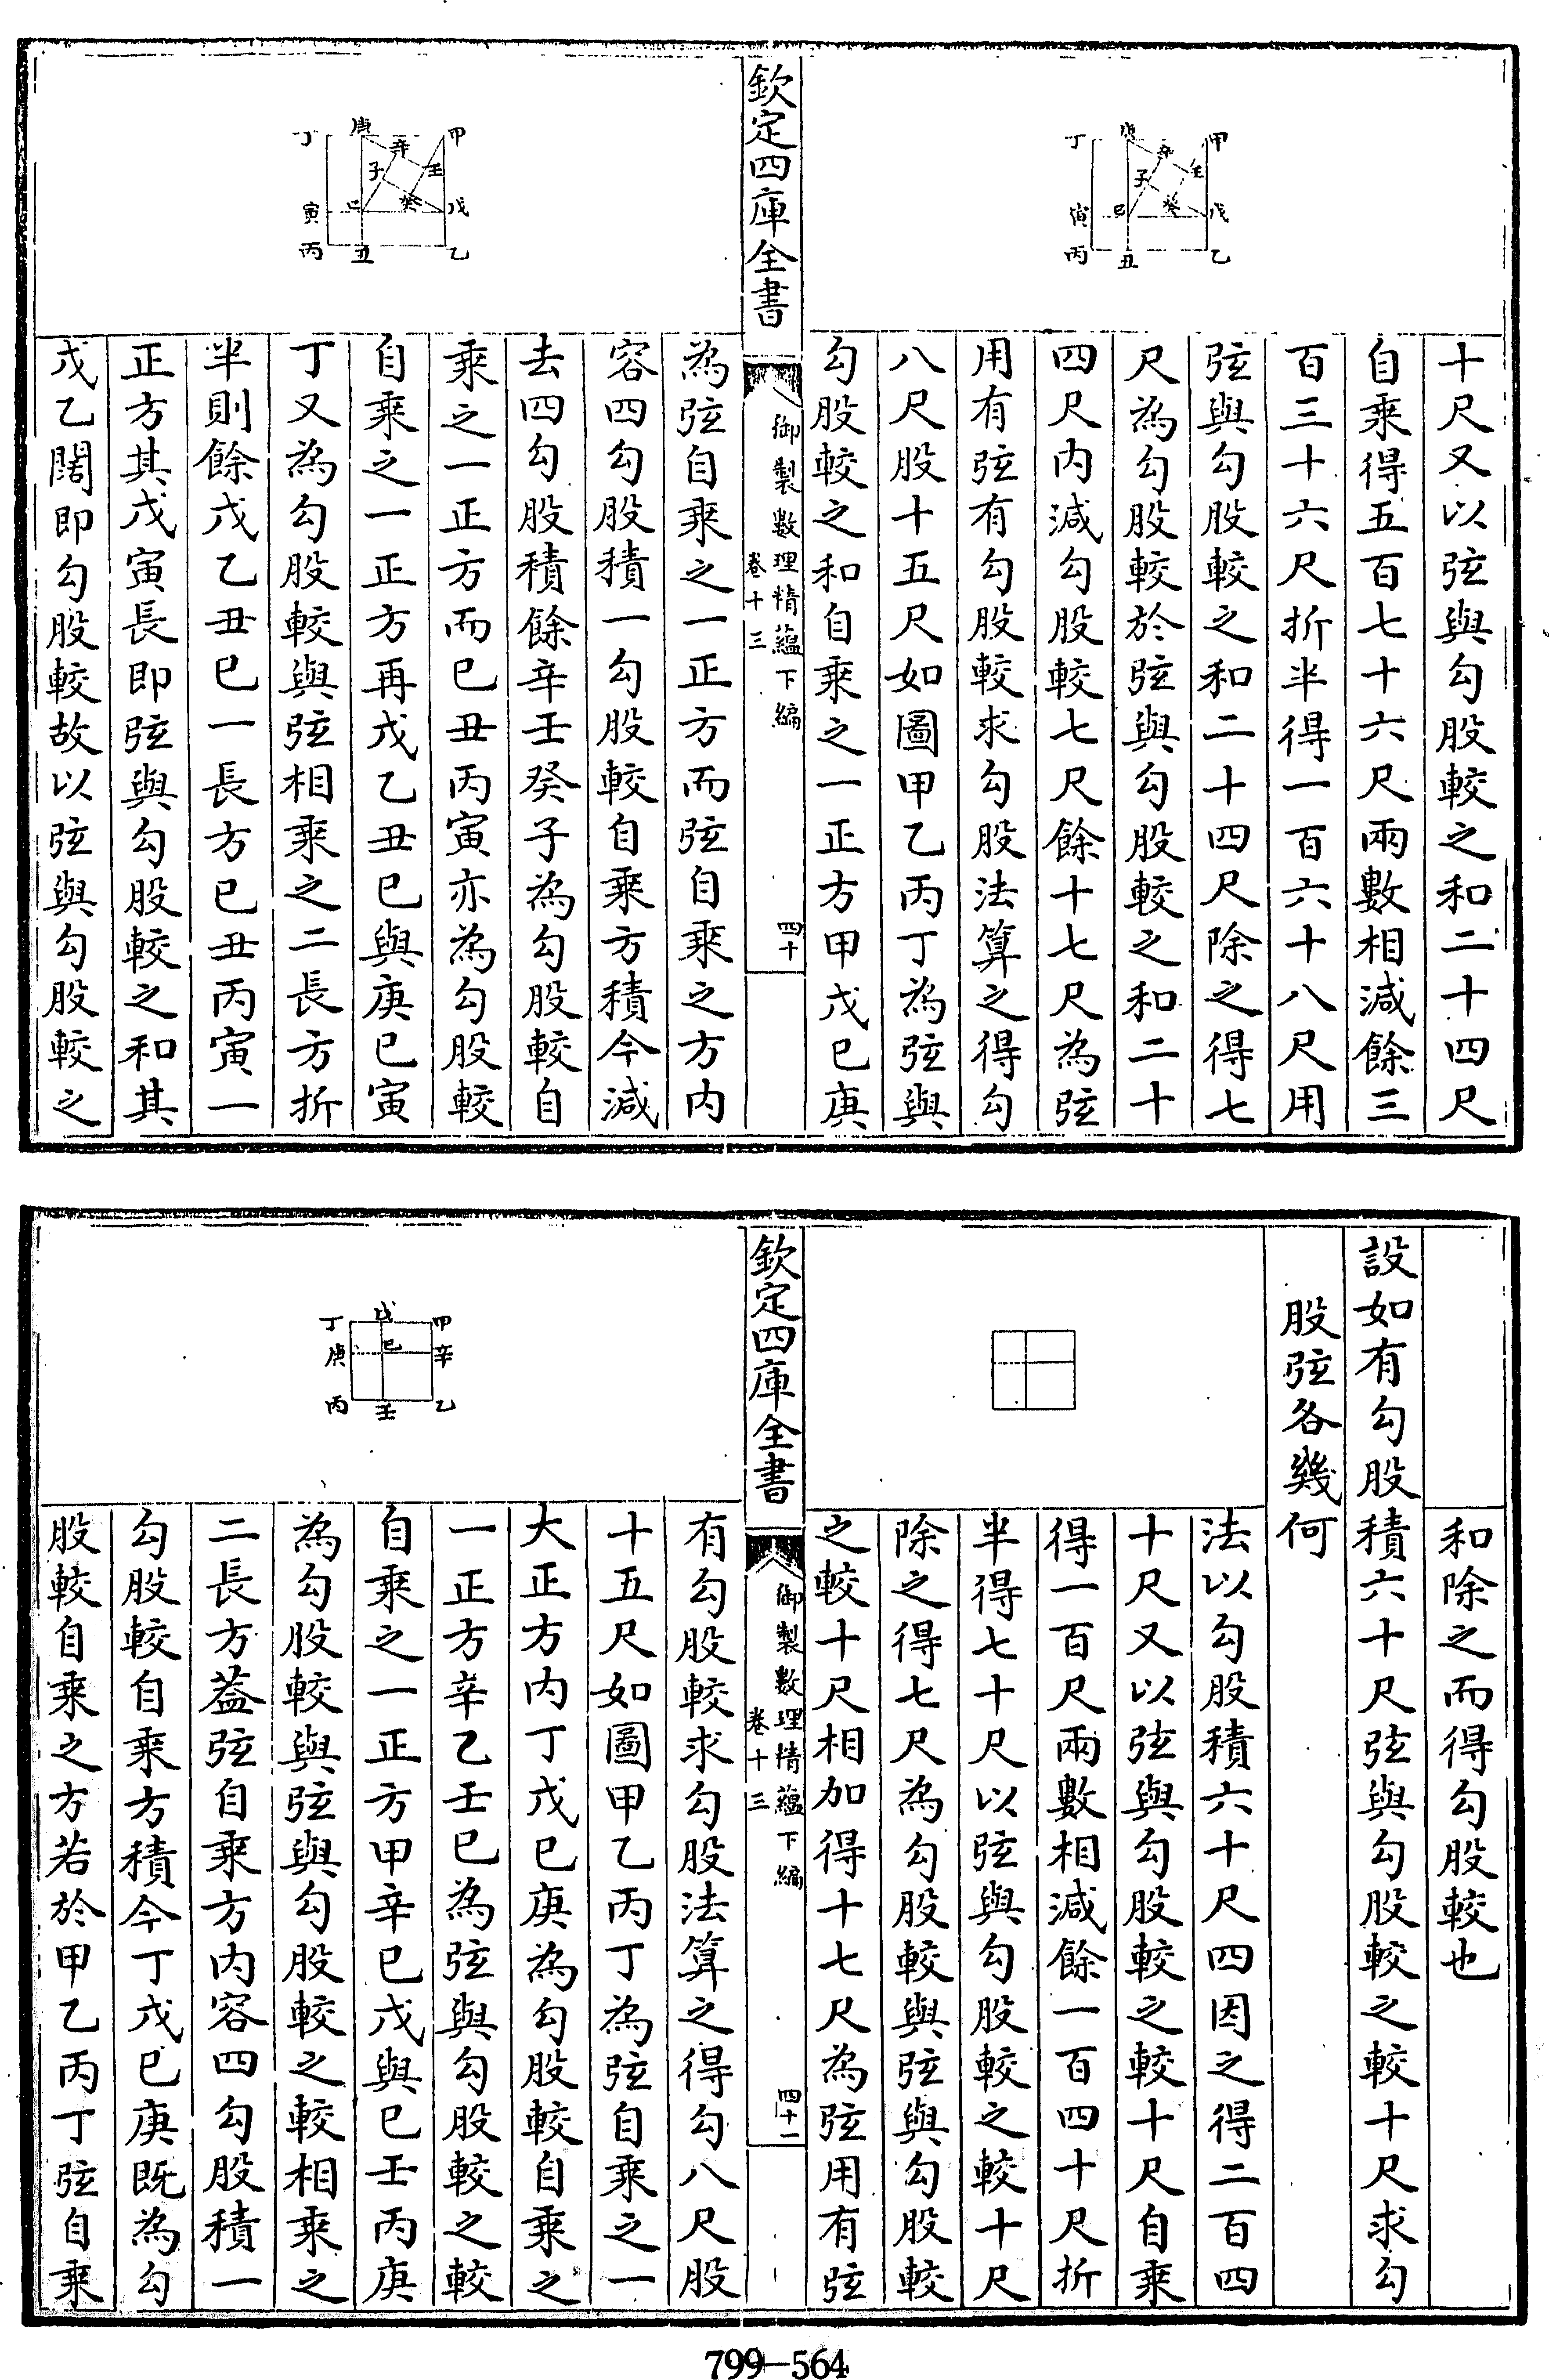 十尺又以弦與勾股較之和二十四尺
自乘得五百七十六尺兩數相減餘三
百三十六尺折半得一百六十八尺用
弦與勾股較之和二十四尺除之得七
尺為勾股較於弦與勾股較之和二十
四尺內減勾股較七尺餘十七尺為弦
用有弦有勾股較求勾股法算之得勾
八尺股十五尺如圖甲乙丙丁為弦與
勾股較之和自乘之一正方甲戊巳庚
丁 庚 甲
辛
子 壬
寅 巳 癸 戊
丙 丑 乙
欽定四庫全書
御製數理精蘊下編
卷十三
四十
為弦自乘之一正方而弦自乘之方內
容四勾股積一勾股較自乘方積今減
去四勾股積餘辛壬癸子為勾股較自
乘之一正方而巳丑丙寅亦為勾股較
自乘之一正方再戊乙丑巳與庚巳寅
丁又為勾股較與弦相乘之二長方折
半則餘戊乙丑巳一長方巳丑丙寅一
正方其戊寅長即弦與勾股較之和其
戊乙闊即勾股較故以弦與勾股較之
丁 庚 甲
辛
子 壬
寅 巳 癸 戊
丙 丑 乙
和除之而得勾股較也
設如有勾股積六十尺弦與勾股較之較十尺求勾
股弦各幾何
法以勾股積六十尺四因之得二百四
十尺又以弦與勾股較之較十尺自乘
得一百尺兩數相減餘一百四十尺折
半得七十尺以弦與勾股較之較十尺
除之得七尺為勾股較與弦與勾股較
之較十尺相加得十七尺為弦用有弦
欽定四庫全書
御製數理精蘊下編
卷十三
四十一
有勾股較求勾股法算之得勾八尺股
十五尺如圖甲乙丙丁為弦自乘之一
大正方內丁戊巳庚為勾股較自乘之
一正方辛乙壬巳為弦與勾股較之較
自乘之一正方甲辛巳戊與巳壬丙庚
為勾股較與弦與勾股較之較相乘之
二長方葢弦自乘方內容四勾股積一
勾股較自乘方積今丁戊巳庚既為勾
股較自乘之方若於甲乙丙丁弦自乘
丁 戊 甲
庚 巳 辛
丙 壬 乙
799-564